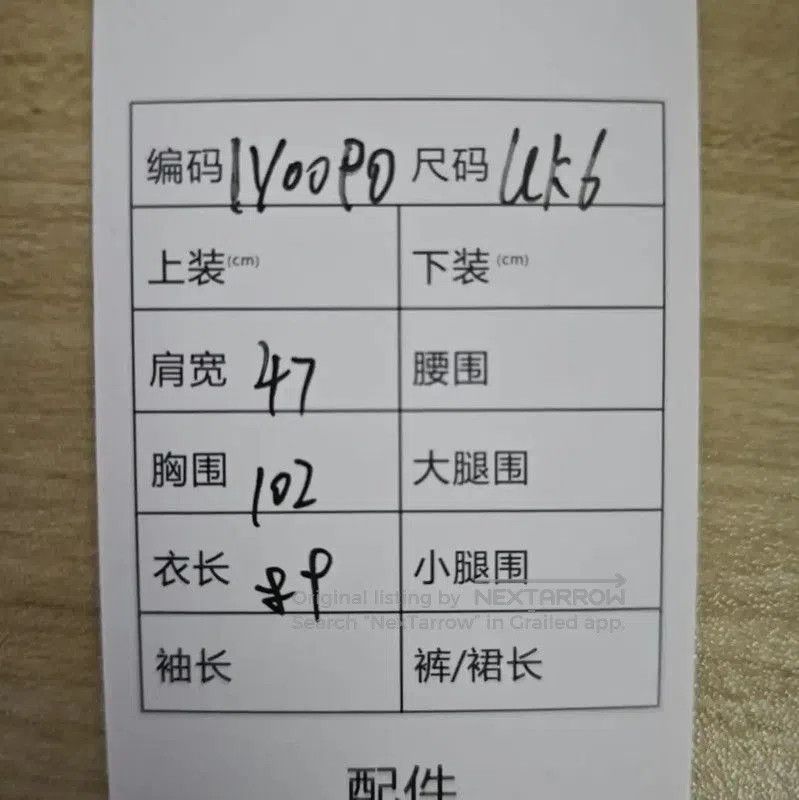 编码 1Y00P0 尺码 UK6
上装(cm) 下装(cm)
肩宽 47 腰围
胸围 102 大腿围
衣长 小腿围
Original listing by NEXTARROW
Search "NexTarrow" in Grailed app.
袖长 裤/裙长
配件